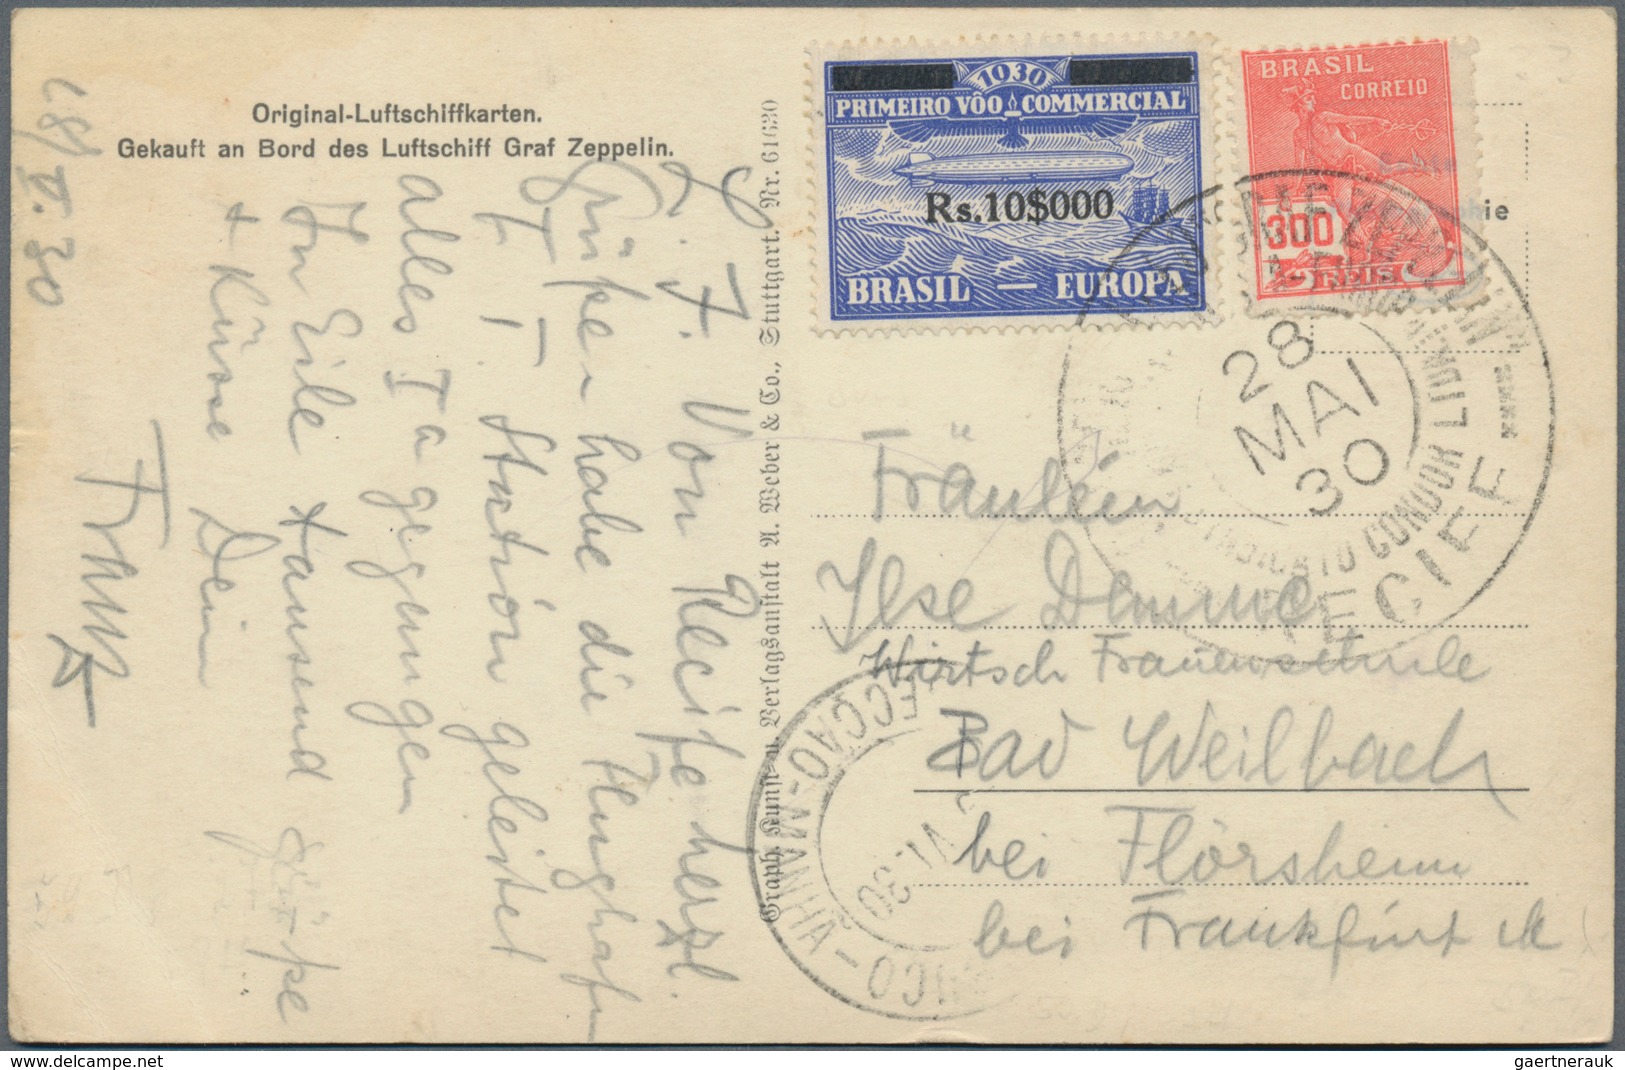 Original-Luftschiffkarten.
Gekauft an Bord des Luftschiff Graf Zeppelin.
28/V. 30
L. I. Von Recife herzl.
Grüße habe die Flughafen
Station geleitet
alles I a gegangen
In Eile tausend Grüße
+ Küsse Dein
Franz
Graph. Kunst- u. Verlagsanstalt A. Weber & Co., Stuttgart. Nr. 61630
1930
PRIMEIRO VÔO COMMERCIAL
Rs.10$000
BRASIL — EUROPA
BRASIL
CORREIO
300
RÉIS
ie
GRAF ZEPPELIN
SYNDICATO CONDOR LTDA
28
MAI
30
RECIFE
Fräulein
Ilse Demme
Wirtsch Frauenschule
Bad Weilbach
bei Flörsheim
bei Frankfurt
SECÇÃO-MANHÃ
VI.30
gaertnerauk
www.delcampe.net